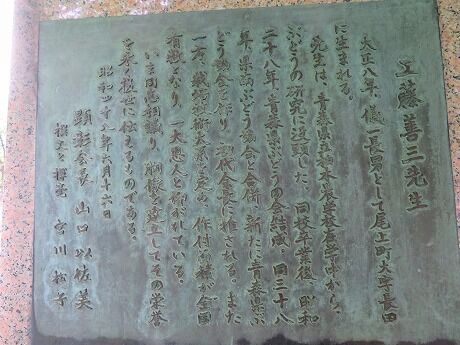 工藤善三先生
大正八年、儀一長男として尾上町大字長田
に生まれる。
先生は、青森県立柏木農学校在学中から、
ぶどうの研究に没頭した。同校卒業後、昭和
二十八年、青森県ぶどうの会結成、同三十八
年、県南ぶどう協会と合併、新たに青森県ぶ
どう協会を作り、初代会長に推される。また
一方、栽培技術大系を定め、作付面積が全国
有数となり、一大恩人と仰がれている。
いま同志相議り、胸像を建立してその栄誉
を永く後世に伝えるものである。
昭和四十九年六月十六日
顕彰会長 山口以佐美
撰文と揮毫 宮川